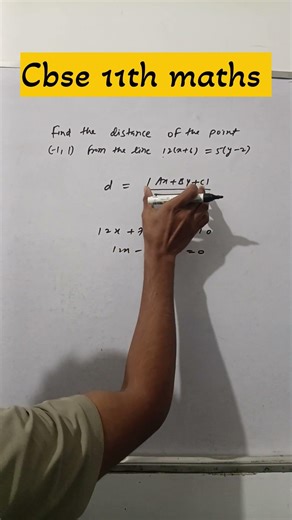 Cbse 11th maths
find the distance of the point
(-1,1) from the line 12(x+6) = 5(y-2)
d = | Ax+By+C|
12x + 7
12x - = 0